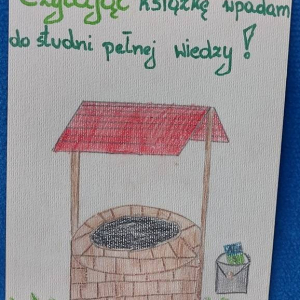 Czytając książkę wpadam
do studni pełnej wiedzy!